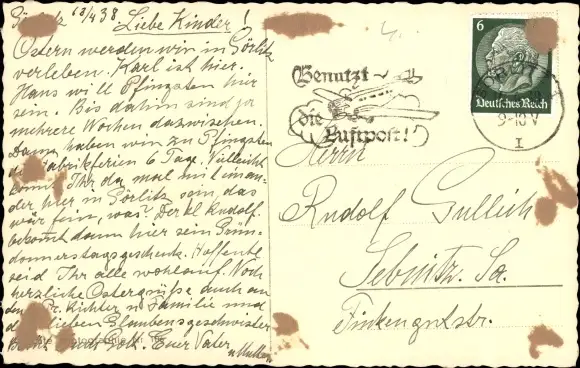 Görlitz 13/4 38. Liebe Kinder!
Ostern werden wir in Görlitz
verleben. Karl ist hier.
Hans will Pfingsten hier
sein. Bis dahin sind ja
mehrere Wochen dazwischen.
Dann haben wir zu Pfingsten
Fabrikferien 6 Tage. Vielleicht
könnt Ihr da mal mit
der hier in Görlitz sein, das
wär fein, was? Der kl. Rudolf
bekommt dann hier sein Grün-
donnerstagsgeschenk. Hoffentl.
seid Ihr alle wohlauf. Noch
herzliche Ostergrüße auch an
Richter u. Familie und
lieben Glaubensgeschwister
Gott. Euer Vater
u Mutter
Benutzt
die
Luftpost!
GÖRLITZ
9-10 V
1
6
Deutsches Reich
Herrn
Rudolf Gullich
Sebnitz. Sa.
Finkengutstr.